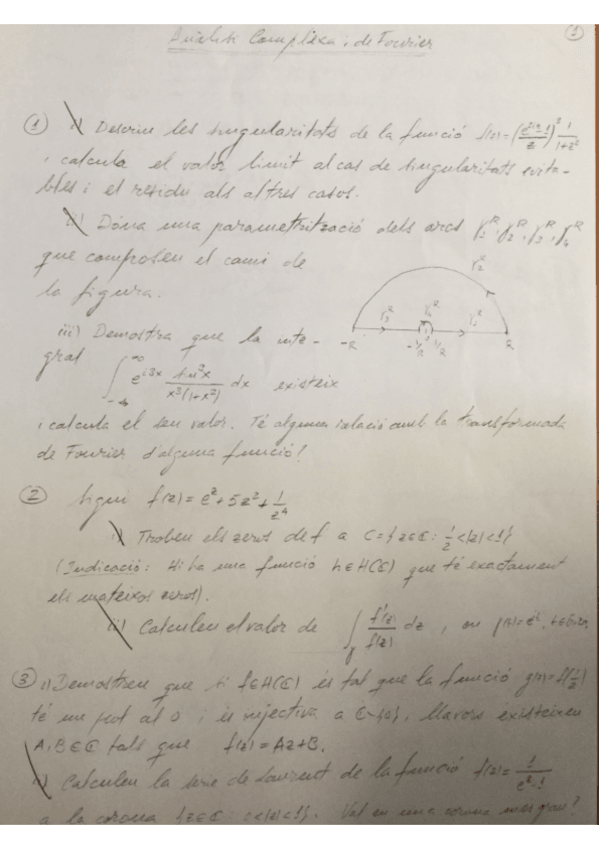 Anàlisi Complexa i de Fourier
1
① i) Descriu les singularitats de la funció f(z) = (e^{iz}-1 / z)^2 1/(1+z^2)
i calcula el valor límit al cas de singularitats evita-
bles i el residu als altres casos.
ii) Dóna una parametrització dels arcs γ_1^R, γ_2^R, γ_3^R, γ_4^R
que composen el camí de
la figura.
γ_2^R
γ_3^R γ_4^R γ_1^R
-R -1/R 1/R R
iii) Demostra que la inte-
gral
∫_{-∞}^{∞} e^{i3x} sin^3 x / x^3(1+x^2) dx existeix
i calcula el seu valor. Té alguna relació amb la transformada
de Fourier d'alguna funció?
② Sigui f(z) = e^z + 5z^2 + 1/z^4
i) Trobeu els zeros de f a C = {z∈ℂ : 1/2 < |z| < 1}
(Indicació: Hi ha una funció h∈H(ℂ) que té exactament
els mateixos zeros).
ii) Calculeu el valor de ∫_γ f'(z)/f(z) dz, on
③ i) Demostreu que si f∈H(ℂ) és tal que la funció g(z) = f(1/z)
té un pol al 0 i és injectiva a ℂ-{0}, llavors existeixen
A, B∈ℂ tals que f(z) = Az+B.
ii) Calculeu la serie de Laurent de la funció f(z) = 1/(e^z-1)
a la corona {z∈ℂ : 0<|z|<1}. Val en una corona mes gran?